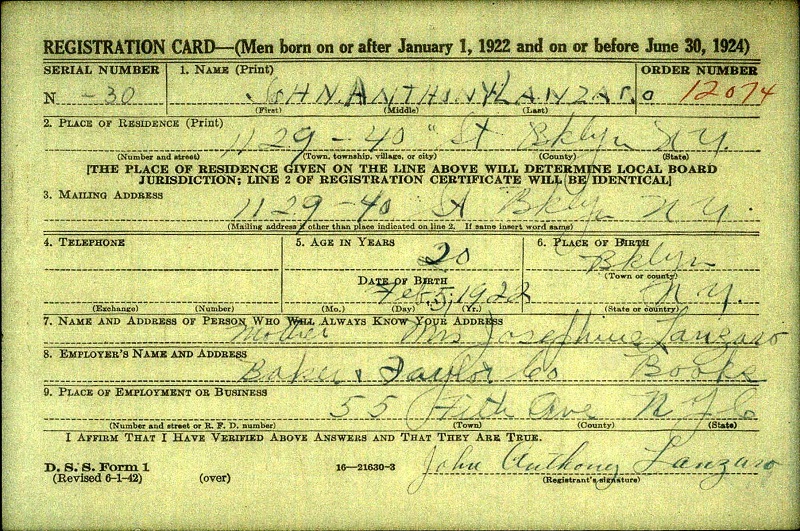 REGISTRATION CARD—(Men born on or after January 1, 1922 and on or before June 30, 1924)
SERIAL NUMBER 1. NAME (Print) ORDER NUMBER
N -30 JOHN ANTHONY LANZARO 12074
(First) (Middle) (Last)
2. PLACE OF RESIDENCE (Print)
1129-40 " St Bklyn N Y.
(Number and street) (Town, township, village, or city) (County) (State)
[THE PLACE OF RESIDENCE GIVEN ON THE LINE ABOVE WILL DETERMINE LOCAL BOARD
JURISDICTION; LINE 2 OF REGISTRATION CERTIFICATE WILL BE IDENTICAL]
3. MAILING ADDRESS
1129-40 St Bklyn N Y.
(Mailing address if other than place indicated on line 2. If same insert word same)
4. TELEPHONE 5. AGE IN YEARS 6. PLACE OF BIRTH
20 Bklyn
(Town or county)
DATE OF BIRTH
Feb 5, 1922 N Y.
(Exchange) (Number) (Mo.) (Day) (Yr.) (State or country)
7. NAME AND ADDRESS OF PERSON WHO WILL ALWAYS KNOW YOUR ADDRESS
Mother Mrs Josephine Lanzaro
8. EMPLOYER'S NAME AND ADDRESS
Baker & Taylor Co Books
9. PLACE OF EMPLOYMENT OR BUSINESS
55 Fifth Ave N Y C
(Number and street or R. F. D. number) (Town) (County) (State)
I AFFIRM THAT I HAVE VERIFIED ABOVE ANSWERS AND THAT THEY ARE TRUE.
D. S. S. Form 1
(Revised 6-1-42) (over) 16—21630-3 John Anthony Lanzaro
(Registrant's signature)